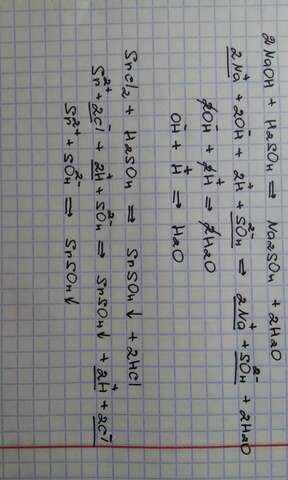 2NaOH + H2SO4 ⇒ Na2SO4 + 2H2O
2Na⁺ + 2OH⁻ + 2H⁺ + SO4²⁻ ⇒ 2Na⁺ + SO4²⁻ + 2H2O
2OH⁻ + 2H⁺ ⇒ 2H2O
OH⁻ + H⁺ ⇒ H2O
SrCl2 + H2SO4 ⇒ SrSO4↓ + 2HCl
Sr²⁺ + 2Cl⁻ + 2H⁺ + SO4²⁻ ⇒ SrSO4↓ + 2H⁺ + 2Cl⁻
Sr²⁺ + SO4²⁻ ⇒ SrSO4↓